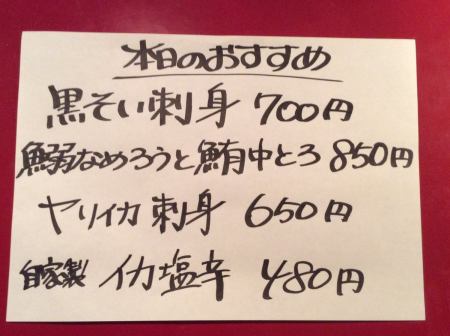 本日のおすすめ
黒そい刺身 700円
鰯なめろうと鮪中とろ 850円
ヤリイカ刺身 650円
自家製 イカ塩辛 480円